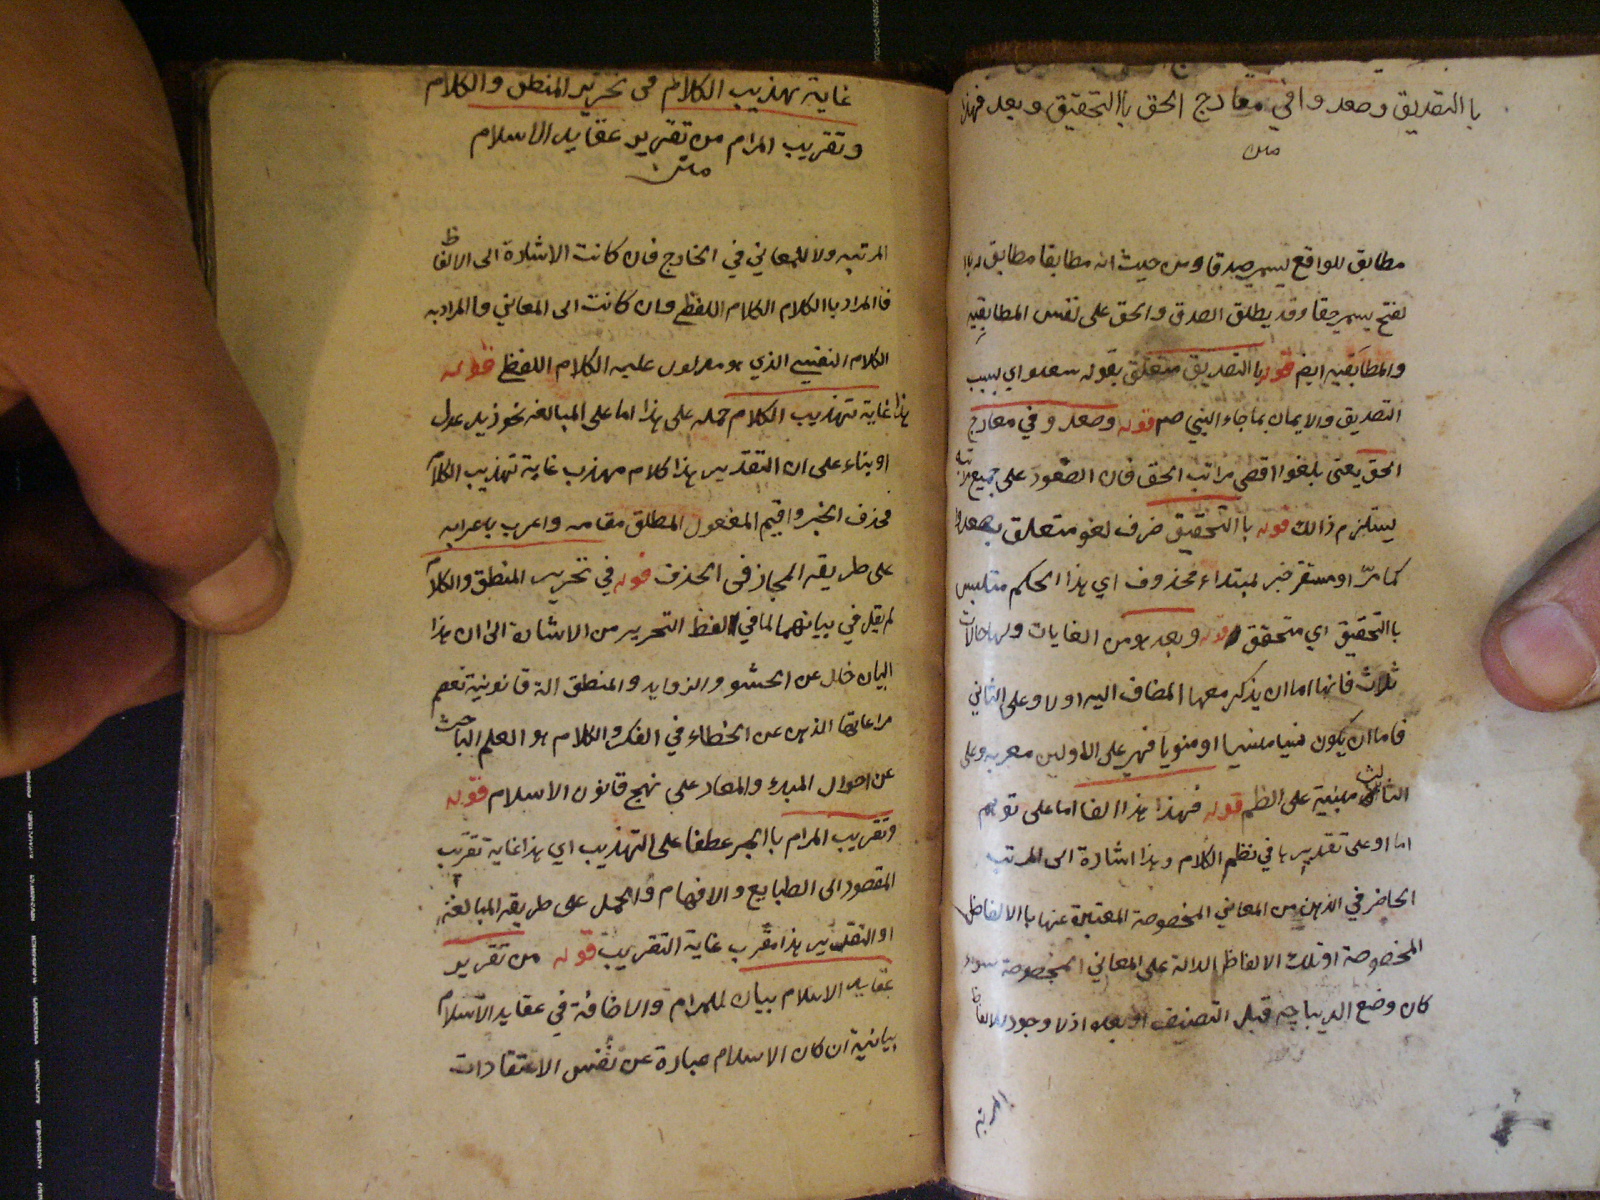 با التصديق وصعدوا في معارج الحق با التحقيق وبعد فهذا
متن
مطابق للواقع يسمى صدقا ومن حيث انه مطابقا مطابق له بالـ
بفتح يسمى حقا وقد يطلق الصدق والحق على نفس المطابقية
والمطابقيه ايضا قوله با التصديق متعلق بقوله سعدوا اي بسبب
التصديق والايمان بما جاء النبي صم قوله وصعدو في معارج
الحق يعنى بلغوا اقصى مراتب الحق فان الصعود على جميع مراتبه
يستلزم ذالك قوله با التحقيق ظرف لغو متعلق بصعدوا
كما مرّ او مستقر خبر لمبتداء محذوف اي هذا الحكم متلبس
با التحقيق اي متحقق قوله وبعد هو من الغايات ولها حالات
ثلاث فانها اما ان يذكر معها المضاف اليه اولا وعلى الثاني
فاما ان يكون نسيا منسيا او منويا فهي على الاولين معربه وعلى
الثالث مبنية على الظم قوله فهذا هذا الفا اما على توهم
اما او على تقديرها في نظم الكلام وهذا اشارة الى المرتب
الحاضر في الذهن من المعاني المخصوصة المعتبرة عنها با الالفاظ
المخصوصة او تلك الالفاظ الدالة على المعاني المخصوصة سواء
كان وضع الديباچه قبل التصنيف او بعده اذ لا وجود للالفاظ
المرتبه
غاية تهذيب الكلام في تحرير المنطق والكلام
وتقريب المرام من تقرير عقايد الاسلام
متن
المرتبه ولا للمعاني في الخارج فان كانت الاشارة الى الالفاظ
فا المراد با الكلام الكلام اللفظي وان كانت الى المعاني فا المراد به
الكلام النفسي الذي هو مدلول عليه الكلام اللفظي قوله
هذا غاية تهذيب الكلام حمله على هذا اما على المبالغه نحو زيد عدل
او بناء على ان التقدير هذا كلام مهذب غاية تهذيب الكلام
فحذف الخبر واقيم المفعول المطلق مقامه واعرب باعرابه
على طريقه المجاز في الحذف قوله في تحرير المنطق والكلام
لم يقل في بيانهما لما في لفظ التحرير من الاشارة الى ان هذا
البيان خال عن الحشو والزوايد والمنطق الة قانونية تعصم
مراعاتها الذهن عن الخطاء في الفكر والكلام هو العلم الباحث
عن احوال المبدء والمعاد على نهج قانون الاسلام قوله
وتقريب المرام با الجر عطفا على التهذيب اي هذا غاية تقريب
المقصود الى الطبايع والافهام والحمل على طريقه المبالغه
او التقدير هذا مقرب غاية التقريب قوله من تقرير
عقايد الاسلام بيان للمرام والاضافة في عقايد الاسلام
بيانية ان كان الاسلام عبارة عن نفس الاعتقادات